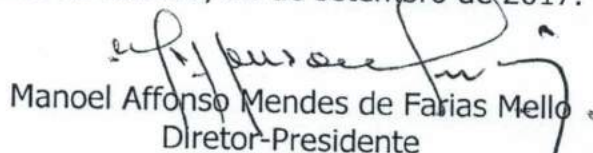 de setembro de 2017.
Manoel Affonso Mendes de Farias Mello
Diretor-Presidente